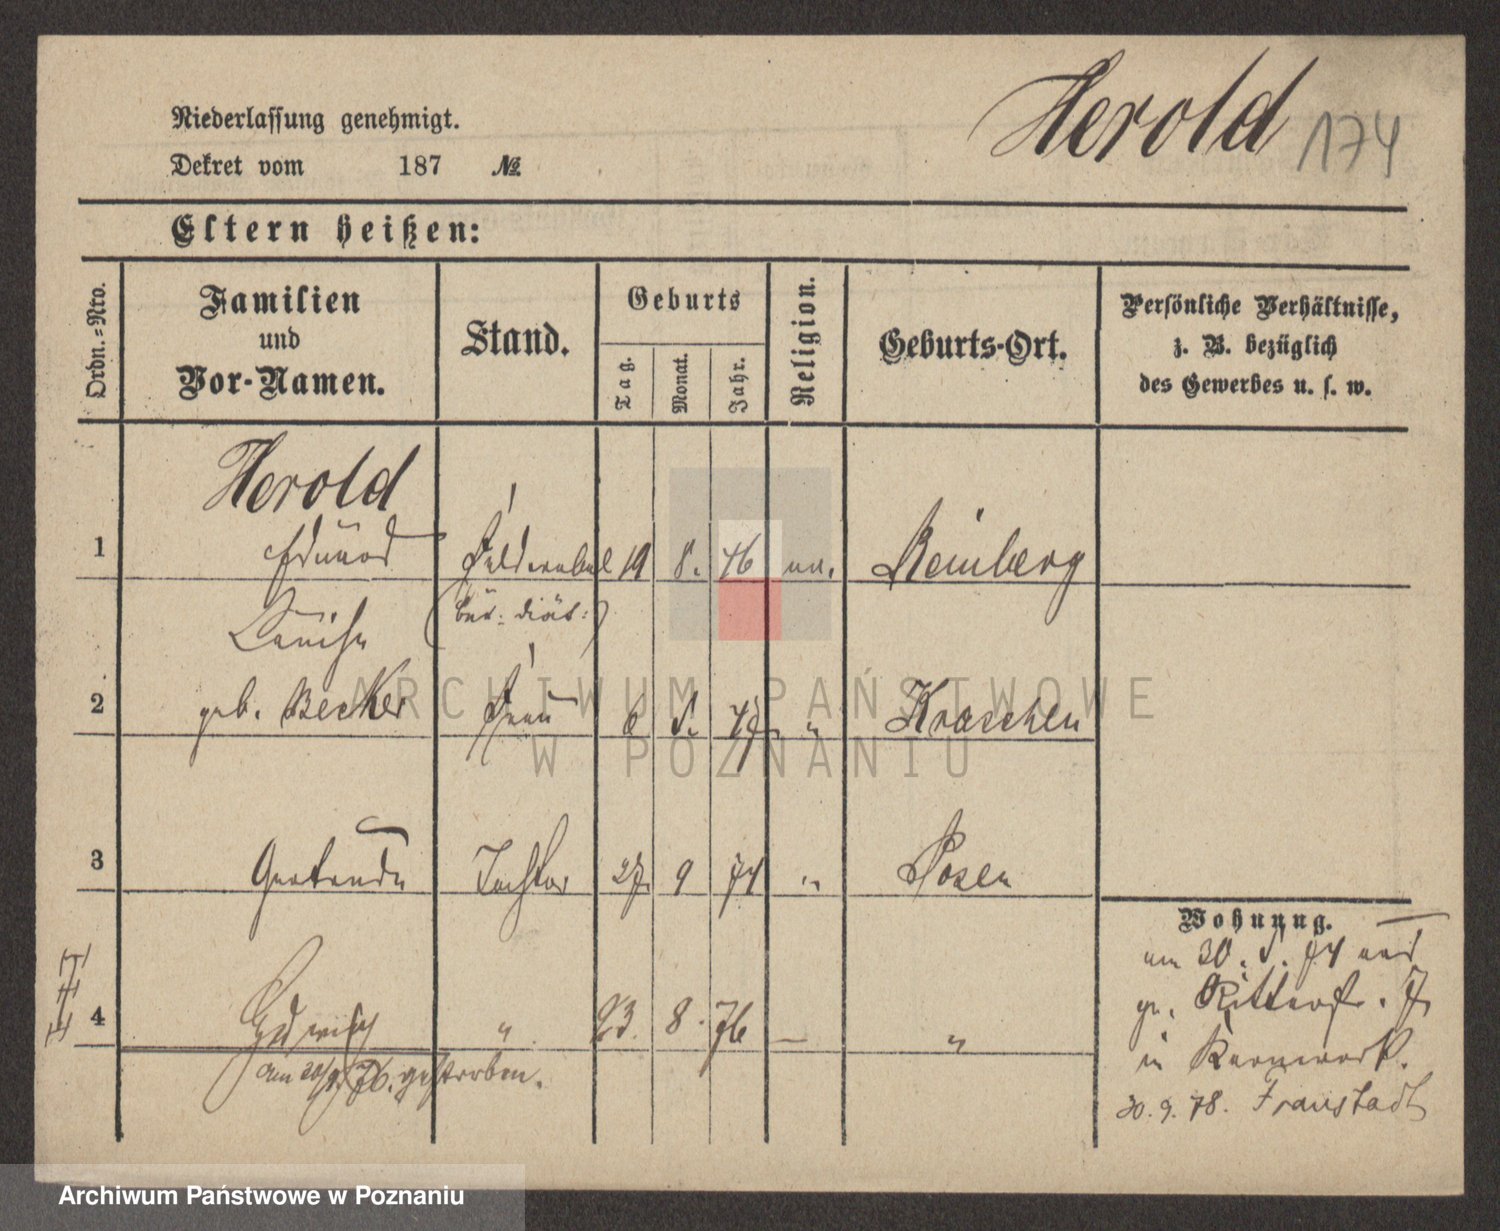 Herold 174
Niederlassung genehmigt.
Dekret vom 187 №
Eltern heißen:
Ordn.-Nro.
Familien
und
Vor-Namen.
Stand.
Geburts
Tag.
Monat.
Jahr.
Religion.
Geburts-Ort.
Persönliche Verhältnisse,
z. B. bezüglich
des Gewerbes u. s. w.
Herold
1 Eduard 19 8. 46 Reinberg
Louise
2 geb. Becker Frau 6 Kraschen
3 Gertrude Tochter 27. 9 74 " Posen
Wohnung.
4 Hedwig " 23. 8. 76 — "
am 20/9. 76. gestorben.
am 30. 74
gr. Ritterstr. 7
in
30. 9. 78. Fraustadt
ARCHIWUM PAŃSTWOWE
W POZNANIU
Archiwum Państwowe w Poznaniu